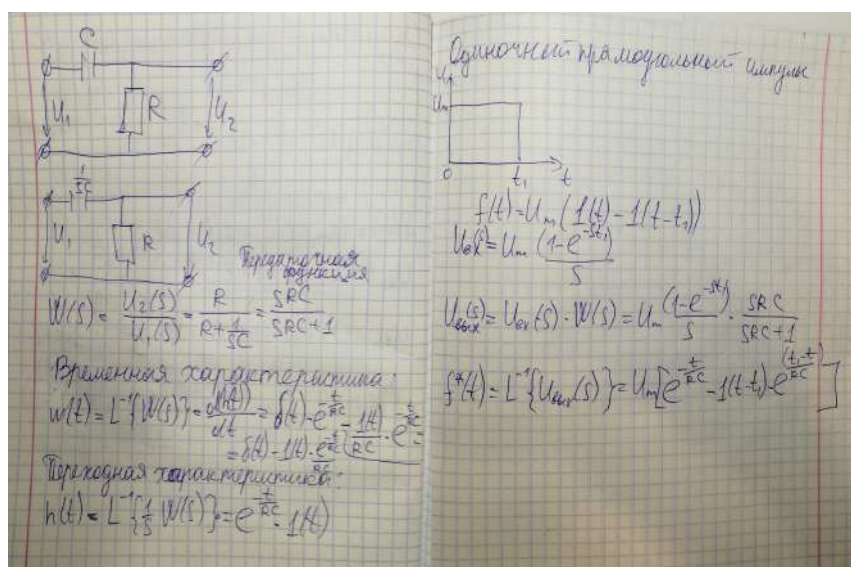 C
U₁ R U₂
1/SC
U₁ R U₂
Передаточная
функция
W(S) = U₂(S)/U₁(S) = R/(R+1/SC) = SRC/(SRC+1)
Временная характеристика:
w(t) = L⁻¹{W(S)} = d(h(t))/dt = δ(t)·e^(-t/RC) - 1(t)/RC · e^(-t/RC) =
= δ(t) - 1(t)·e^(-t/RC)/RC
Переходная характеристика:
h(t) = L⁻¹{1/S W(S)} = e^(-t/RC) · 1(t)
Одиночный прямоугольный импульс
U
Uₘ
0 t₁ t
f(t) = Uₘ(1(t) - 1(t-t₁))
Uвх(S) = Uₘ (1-e^(-St₁))/S
Uвых(S) = Uвх(S) · W(S) = Uₘ (1-e^(-St₁))/S · SRC/(SRC+1)
f*(t) = L⁻¹{Uвых(S)} = Uₘ[e^(-t/RC) - 1(t-t₁)·e^((t₁-t)/RC)]